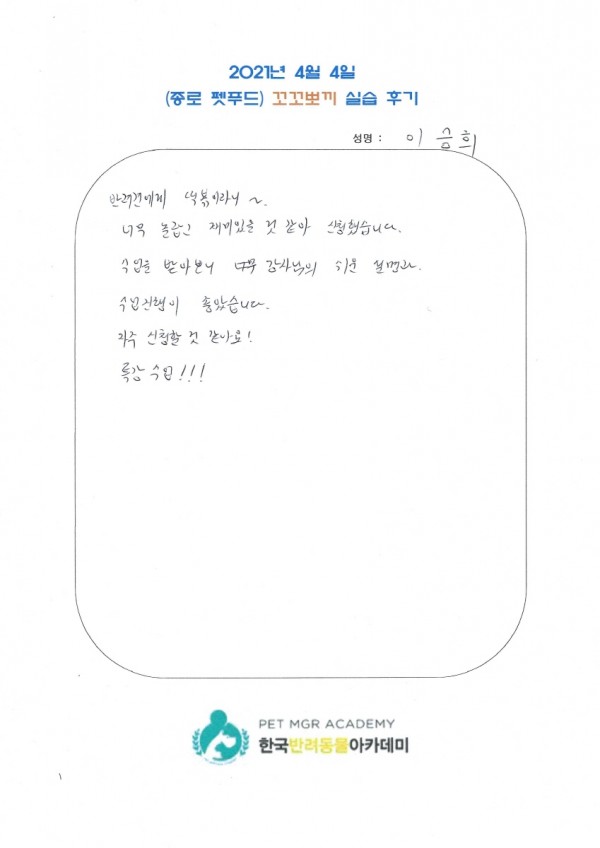 2021년 4월 4일
(종로 펫푸드) 꼬꼬뽀끼 실습 후기
성명 : 이승희
반려견에게 떡볶이라니 ~.
너무 놀랍고 재미있을 것 같아 신청했습니다.
수업을 받아보니 너무 강사님의 쉬운 설명과
수업진행이 좋았습니다.
자주 신청할 것 같아요!
특강 수업!!!
PET MGR ACADEMY
한국반려동물아카데미